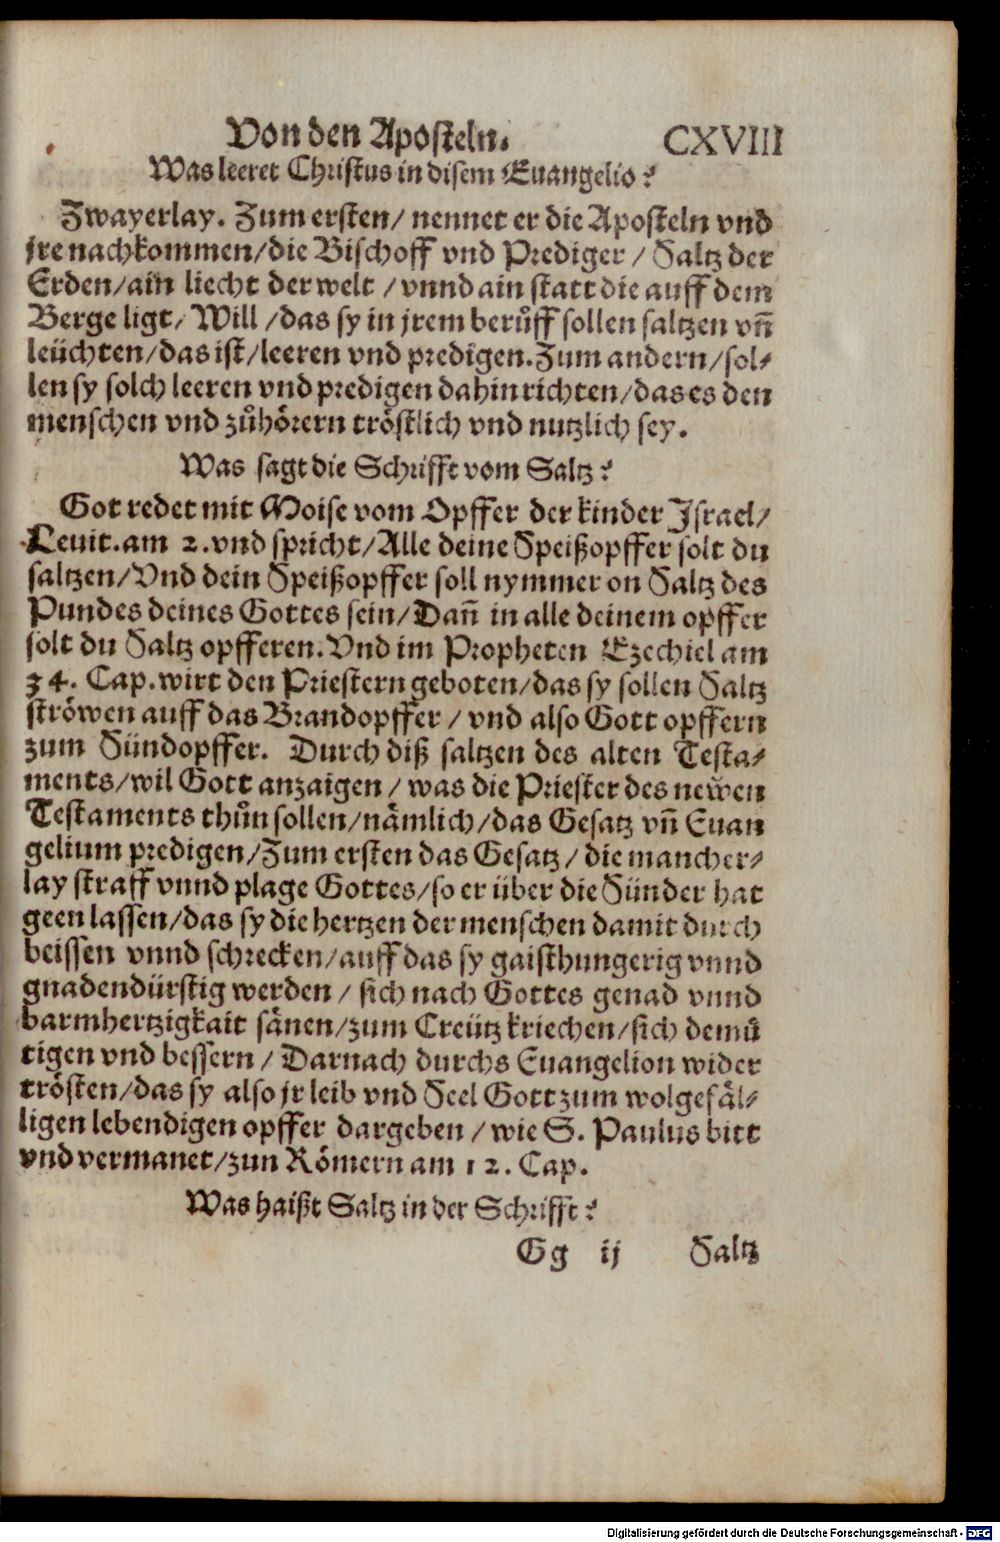 Von den Aposteln. CXVIII
Was leeret Christus in disem Euangelio?
Zwayerlay. Zum ersten/ nennet er die Aposteln vnd
jre nachkommen/die Bischoff vnd Prediger / Saltz der
Erden/ain liecht der welt / vnnd ain statt die auff dem
Berge ligt/ Will /das sy in jrem berůff sollen saltzen vñ
leüchten/das ist/leeren vnd predigen. Zum andern/sol-
len sy solch leeren vnd predigen dahin richten/das es den
menschen vnd zůhörern tröstlich vnd nutzlich sey.
Was sagt die Schrifft vom Saltz?
Got redet mit Moise vom Opffer der kinder Israel/
Leuit. am 2. vnd spricht/Alle deine Speißopffer solt du
saltzen/Vnd dein Speißopffer soll nymmer on Saltz des
Pundes deines Gottes sein/Dañ in alle deinem opffer
solt du Saltz opfferen. Vnd im Propheten Ezechiel am
34. Cap. wirt den Priestern geboten/das sy sollen Saltz
ströwen auff das Brandopffer / vnd also Gott opffern
zum Sündopffer. Durch diß saltzen des alten Testa-
ments/wil Gott anzaigen / was die Priester des newen
Testaments thůn sollen/nämlich/das Gesatz vñ Euan
gelium predigen/Zum ersten das Gesatz / die mancher-
lay straff vnnd plage Gottes/so er über die Sünder hat
geen lassen/das sy die hertzen der menschen damit durch
beissen vnnd schrecken/auff das sy gaisthungerig vnnd
gnadendürstig werden / sich nach Gottes genad vnnd
barmhertzigkait sänen/zum Creütz kriechen/sich demů
tigen vnd bessern / Darnach durchs Euangelion wider
trösten/das sy also jr leib vnd Seel Gott zum wolgefäl-
ligen lebendigen opffer dargeben / wie S. Paulus bitt
vnd vermanet/zun Römern am 12. Cap.
Was haißt Saltz in der Schrifft?
Gg ij Saltz
Digitalisierung gefördert durch die Deutsche Forschungsgemeinschaft - DFG